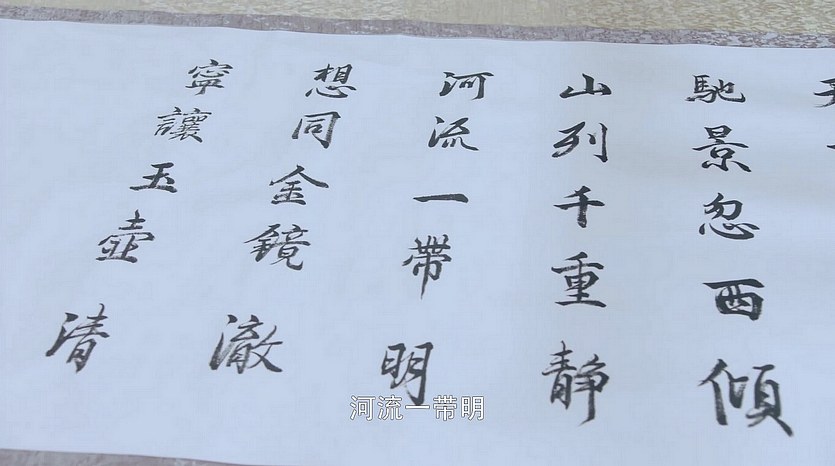 馳景忽西傾
山列千重静
河流一帶明
想同金鏡澈
寧讓玉壺清
河流一带明